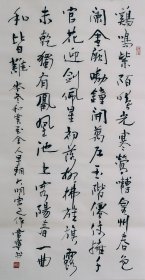 鷄鳴紫陌曙光寒鶯囀皇州春色
闌金闕曉鐘開萬户玉階仙仗擁千
官花迎劍佩星初落柳拂旌旗露
未乾獨有鳳凰池上客陽春一曲
和皆難 岑參和賈至舍人早朝大明宮之作